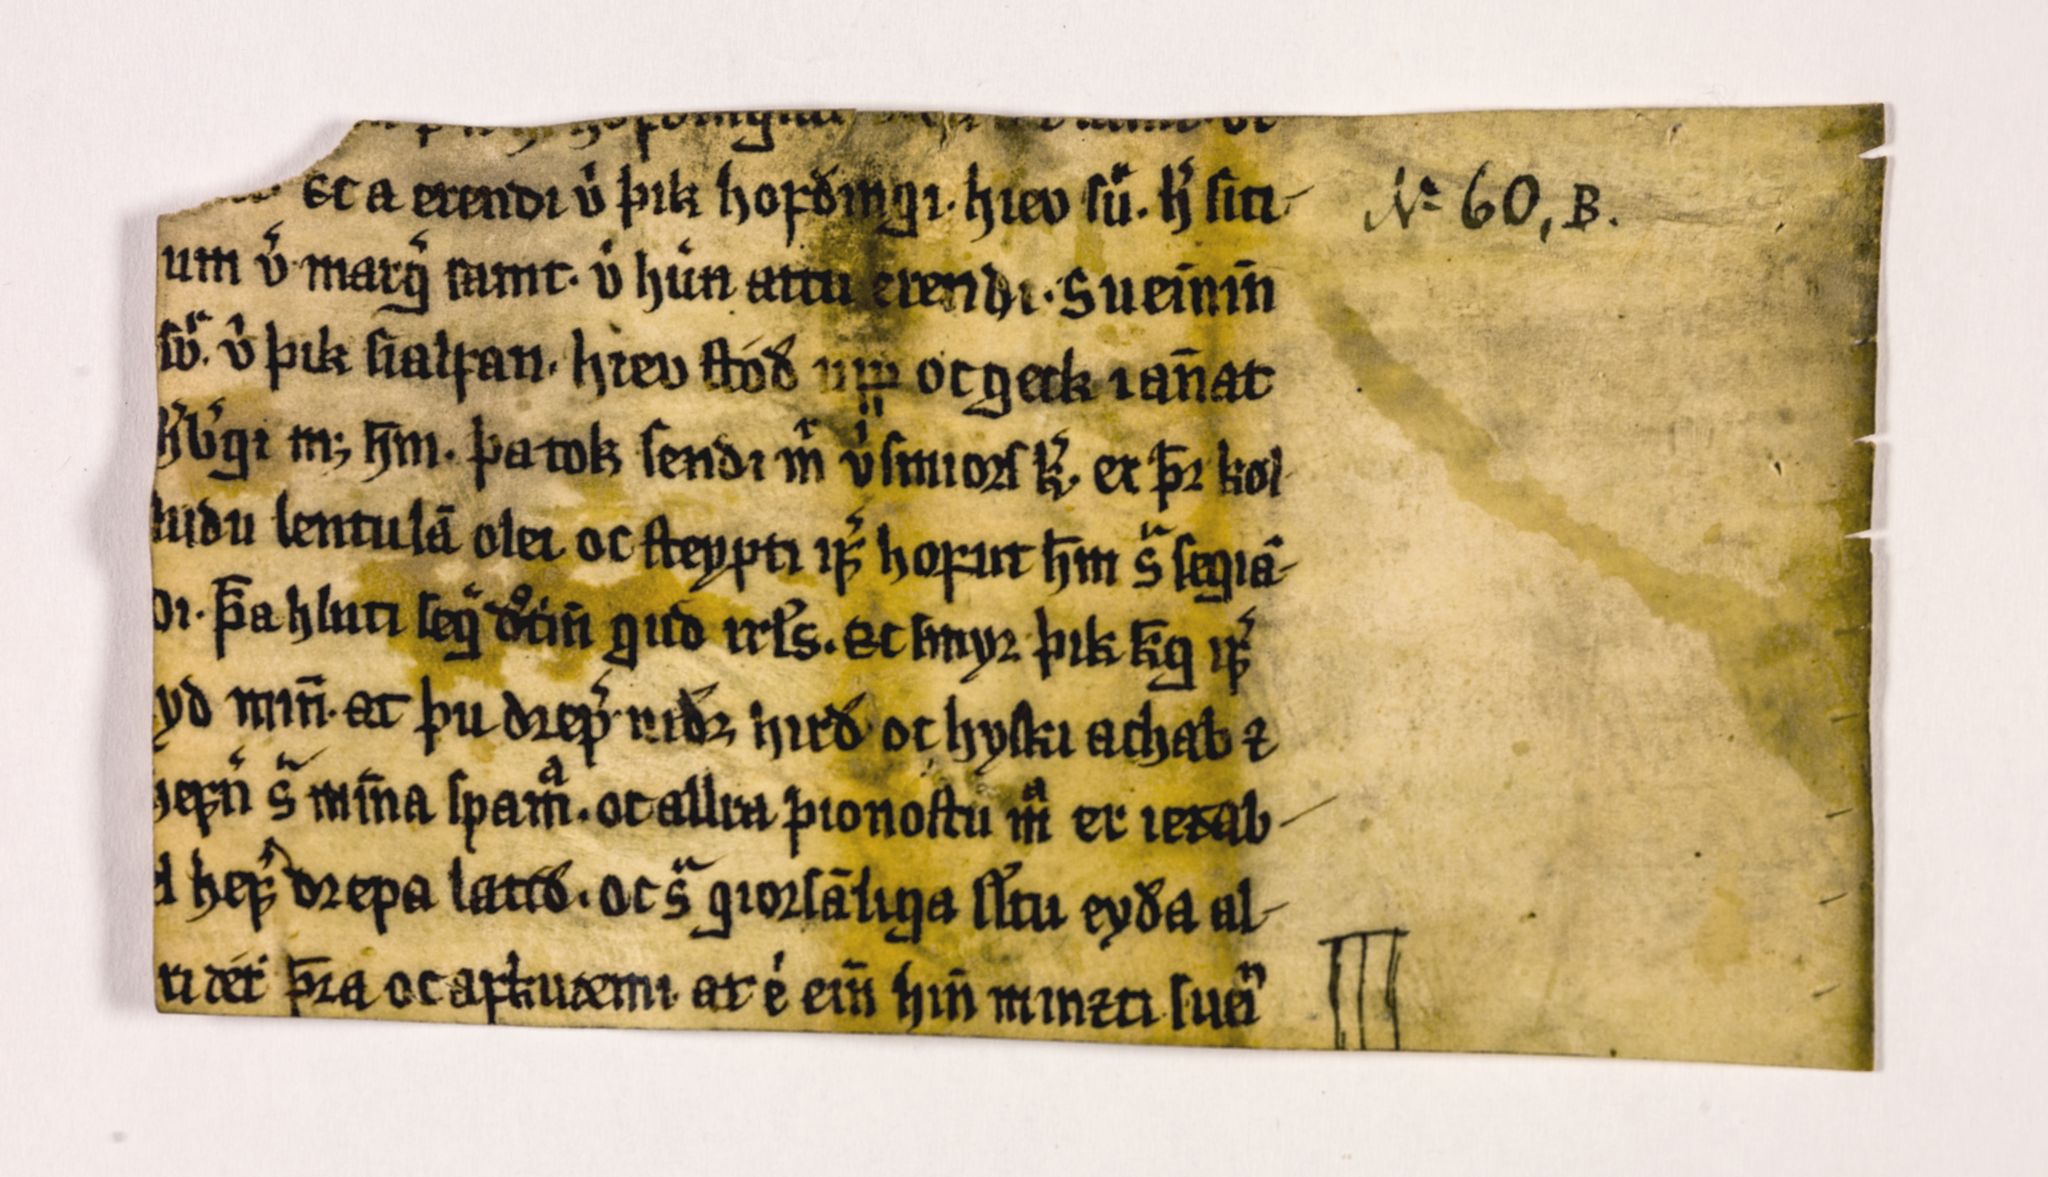 hofdingia
Ec a erendi v͛ þik hofðingi. hiev sͧ. h͛ siti-
um v͛ marg͛ samt. v͛ hũn attu erendi. Sueīnīn
sv͛. v͛ þik sialfan. hiev ſtóð upp oc geck i an̄at
h͛b͛gi m; h̄m. þa tok sendi m̄ v͛ſmiors k͛. er þ̄r kol
ludu lentulā olei oc ſteypti yf͛ hofut h̄m s͛ segiā-
di. þ̄a hluti seg͛ drotīn̄ gud irl͛s. Ec smyr þik k̄g yf͛
yd min̄. at þu drep͛ nidr hirð oc hyſki achab ⁊
hefn͛ s͛ mīna spamͣ. oc allra þionoſtu mͣ er iezab-
l hef͛ drepa latið. oc s͛ giorſāliga ſl͛tu eyða al-
ri ætt þ̄ra oc afkuæmi at é ein̄ hin̄ minzti suein̄
No 60, B.